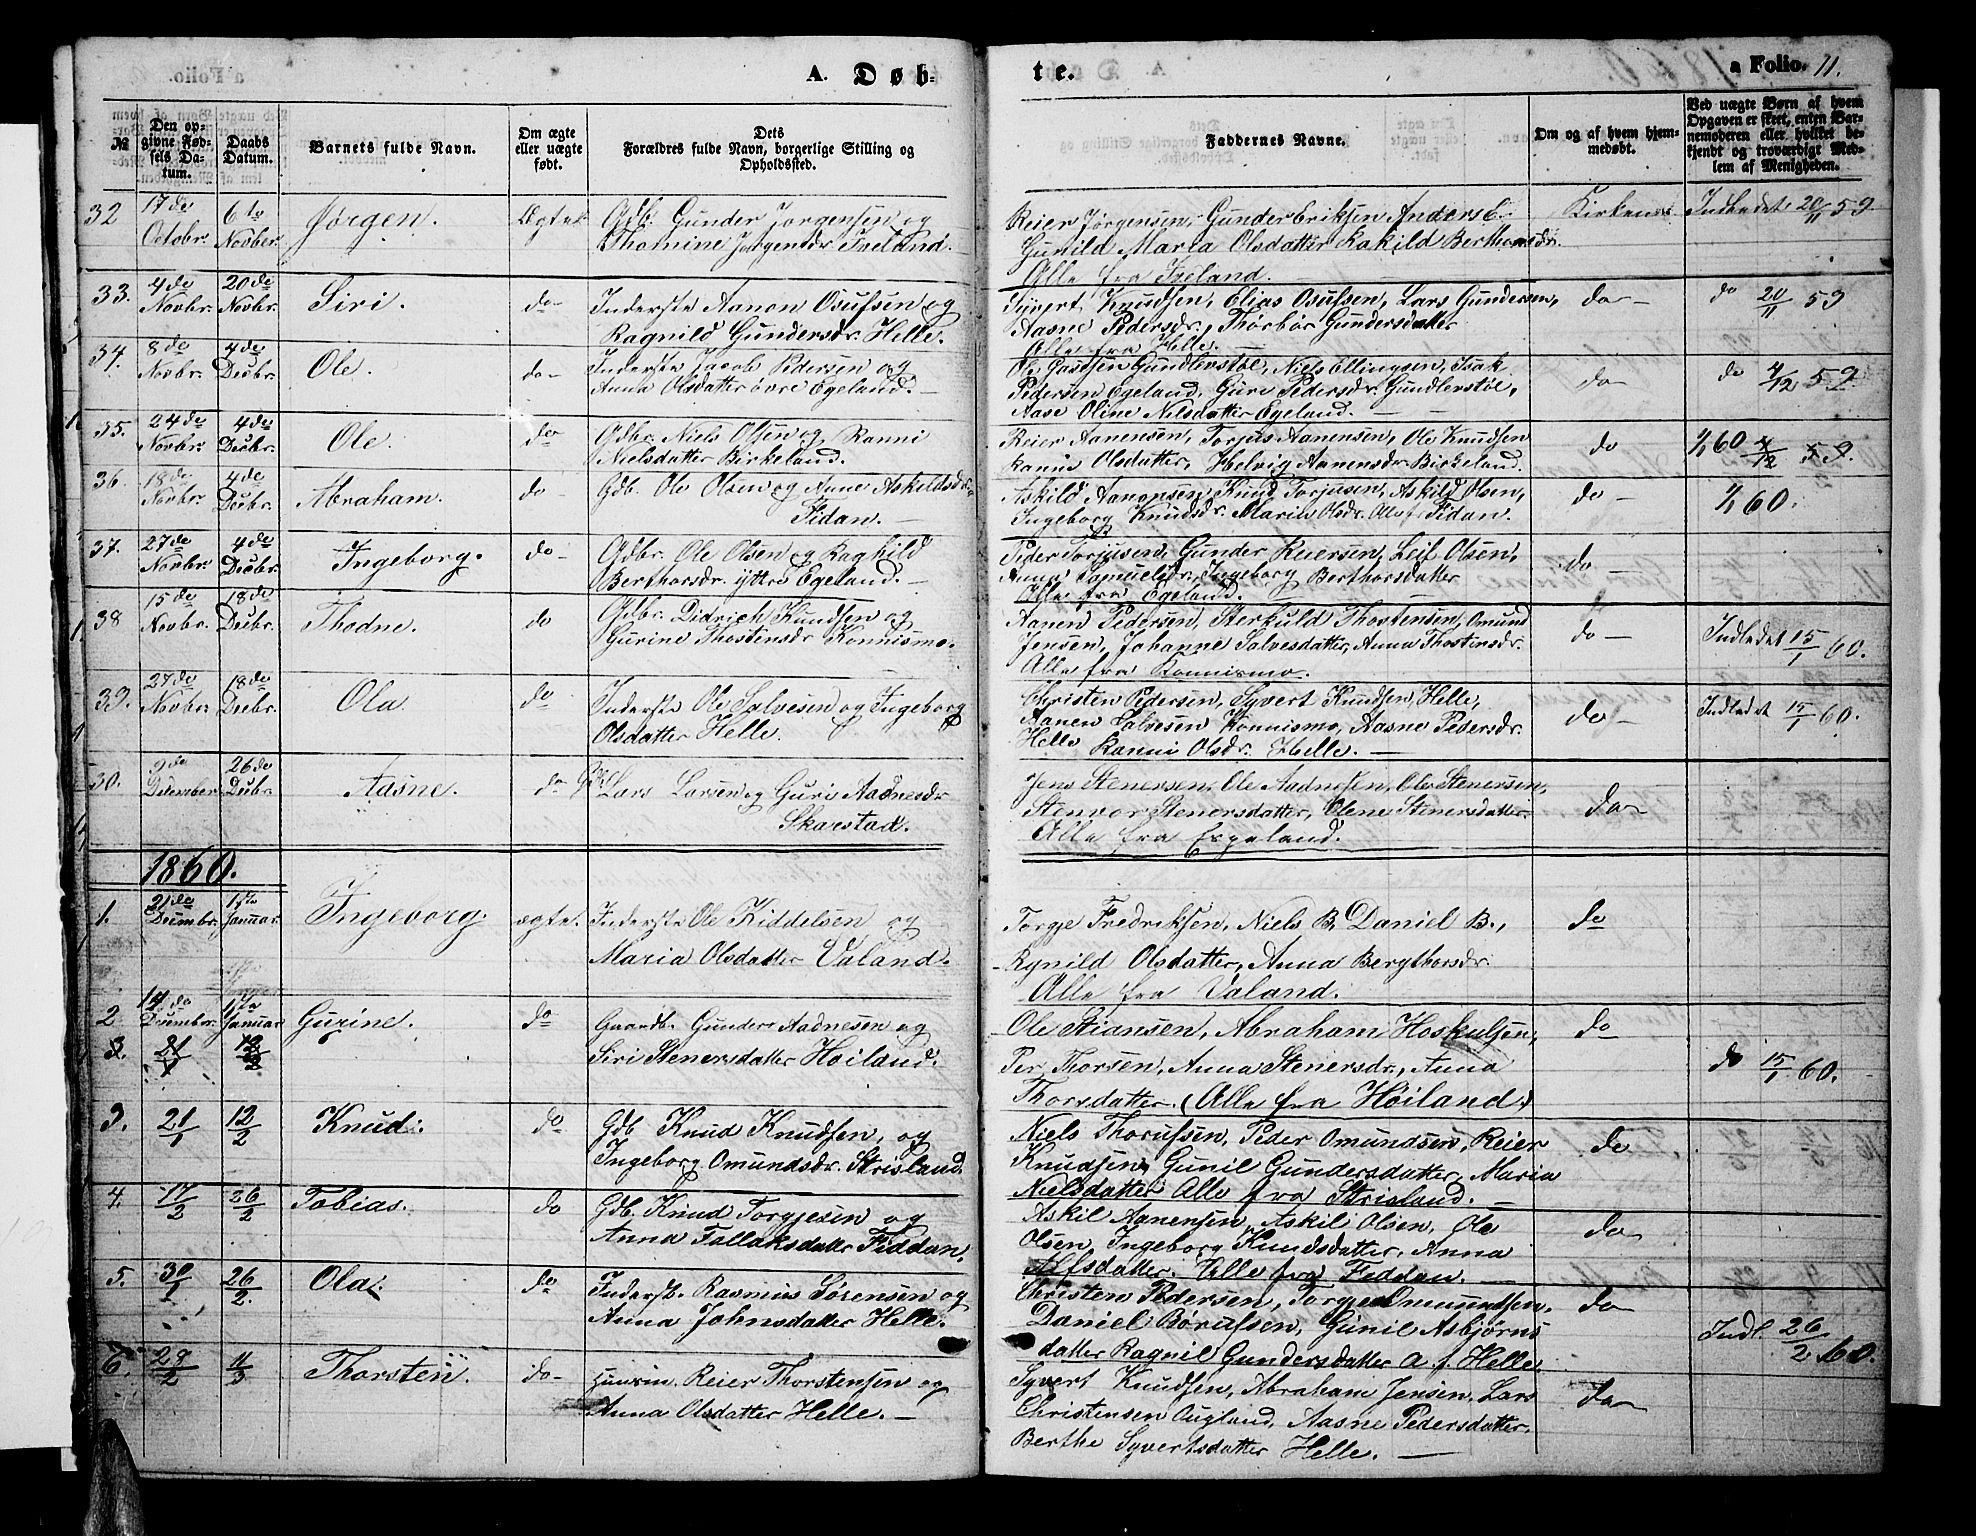 A. Døb-
te.
a Folio. 11.
№
Den op-
givne Fød-
sels Da-
tum.
Daabs
Datum.
Barnets fulde Navn.
Om ægte
eller uægte
født.
Dets
Forældres fulde Navn, borgerlige Stilling og
Opholdssted.
Faddernes Navne.
Om og af hvem hjem-
medøbt.
Ved uægte Børn af hvem
Opgaven er skeet, enten Bar-
nemoderen eller hvilket be-
kjendt og troværdigt Med-
lem af Menigheden.
32 17de Octobr. 6te Novber. Jørgen. Ægte
Gdb. Gunder Jørgensen og
Thomine Jørgensdr Iveland.
Reier Jørgensen, Gunder Eriksen Anders E.
Gunild Maria Olsdatter Ragild Berthorsdr.
Alle fra Iveland.
Kirken
Indledet 20/11 59
33. 4de Novbr. 20de Novbr. Siri. do-
Inderste Aanon Osufsen og
Ragnild Gundersdr. Helle.
Syvert Knudsen, Elias Osufsen, Lars Gundersen,
Aasne Pedersdr., Thorbør Gundersdatter
Alle fra Helle.
do-
do 20/11 59
34. 8de Novbr. 4de Decbr. Ole. do-
Inderste Jacob Pedersen og
Anna Olsdatter øvre Egeland.
Gundlevstøl, Niels Ellingsen, Isak
Pedersen Egeland, Guri Pedersdr. Gundlevstøl,
Aase Oline Nilsdatter Egeland.
do
do 4/12 59
35. 24de Novbr. 4de Decbr. Ole. do
Gdbr. Niels Olsen og Ranni
Nielsdatter Birkeland.
Reier Aanensen, Torjus Aanensen, Ole Knudsen
Ranni Olsdatter, Helvig Aanensdr. Birkeland.
do
1/1 60 4/12 59.
36. 18de Novbr. 4de Decbr. Abraham. do
Gdb. Ole Olsen og Anne Askildsdr.
Fidan.
Askild Aanonsen, Knud Torjusen, Askild Olsen,
Ingeborg Knudsdr. Olsdr. Alle f. Fidan.
do-
1/1 60.
37. 27de Novbr. 4de Decbr. Ingeborg. do
Gdbr. Ole Olsen og Raghild
Berthorsdr. ytre Egeland.
Peder Torjusen, Gunder Reiersen, Leif Olsen,
Anna Samuelsdr. Ingeborg Berthorsdatter
Alle fra Egeland.
do-
38 15de Novbr. 18de Decbr. Thodne. do
Gdbr. Didrich Knudsen og
Gurine Thostinsdr Konnismo.
Aanen Pedersen, Sterkuld Thostensen, Omund
Jensen, Johanne Salvesdatter, Anna Thostensdr.
Alle fra Konnismo.
do-
Indledet 15/1 60.
39. 27de Novber 18de Decbr. Ola. do
Inderste Ole Salvesen og Ingeborg
Olsdatter Helle.
Christen Pedersen, Syvert Knudsen, Helle,
Aanen Salvesen Konnismo, Aasne Pedersdr.
Helle Ranni Olsdr. Helle.
do-
Indledet 15/1 60.
30. 2de December 26de Decbr. Aasne. do
Gdb. Lars Larsen og Guri Aadnesdr.
Skarstad.
Jens Stenersen, Ole Aadnesen, Ole Stenersen,
Stenvor Stenersdatter, Olene Stenersdatter
Alle fra Espeland.
do
1860.
1. 21de Decembr. 1ste Januar. Ingeborg. ægte.
Inderste Ole Kiddelsen og
Maria Olsdatter Valand.
Torje Fredriksen, Niels B. Daniel B.,
Rynild Olsdatter, Anna Bergthorsdr.
Alle fra Valand.
do
2 14de December 1ste Januar Gurine. do
Gaardb. Gunder Aadnesen og
Siri Stenersdatter Høiland.
3. 21/1 12/2
Ole Stiansen, Abraham Hoskulsen,
Per Thorsen, Anna Stenersdr., Anna
Thorsdatter. (Alle fra Høiland.)
do
do 15/1 60.
3. 21/1 12/2 Knud. do
Gdb. Knud Knudsen, og
Ingeborg Omundsdr. Strisland.
Niels Thorufsen, Peder Omundsen, Reier
Knudsen, Gunil Gundersdatter, Maria
Nielsdatter Alle fra Strisland.
do
4. 17/2 26/2 Tobias. do
Gdb. Knud Torgjesen og
Anna Follaksdatter Fiddan.
Askil Aanensen, Askil Olsen, Ole
Olsen, Ingeborg Knudsdatter, Anna
Alfsdatter. Alle fra Feddan.
do
5. 30/1 26/2. Ola. do
Inderst. Rasmus Sørensen og
Anna Johnsdatter Helle.
Christen Pedersen, Torgje Omundsen,
Daniel Borufsen, Gunil Asbjørns
datter Ragnil Gundersdatter A. f. Helle
do
Indl. 26/2 60.
6. 29/2 11/3 Thorsten. do-
Reier Thorstensen og
Anna Olsdatter Helle.
Syvert Knudsen, Abraham Jensen, Lars
Christensen Augland, Aasne Pedersdatter,
Berthe Syvertsdatter Helle.
do